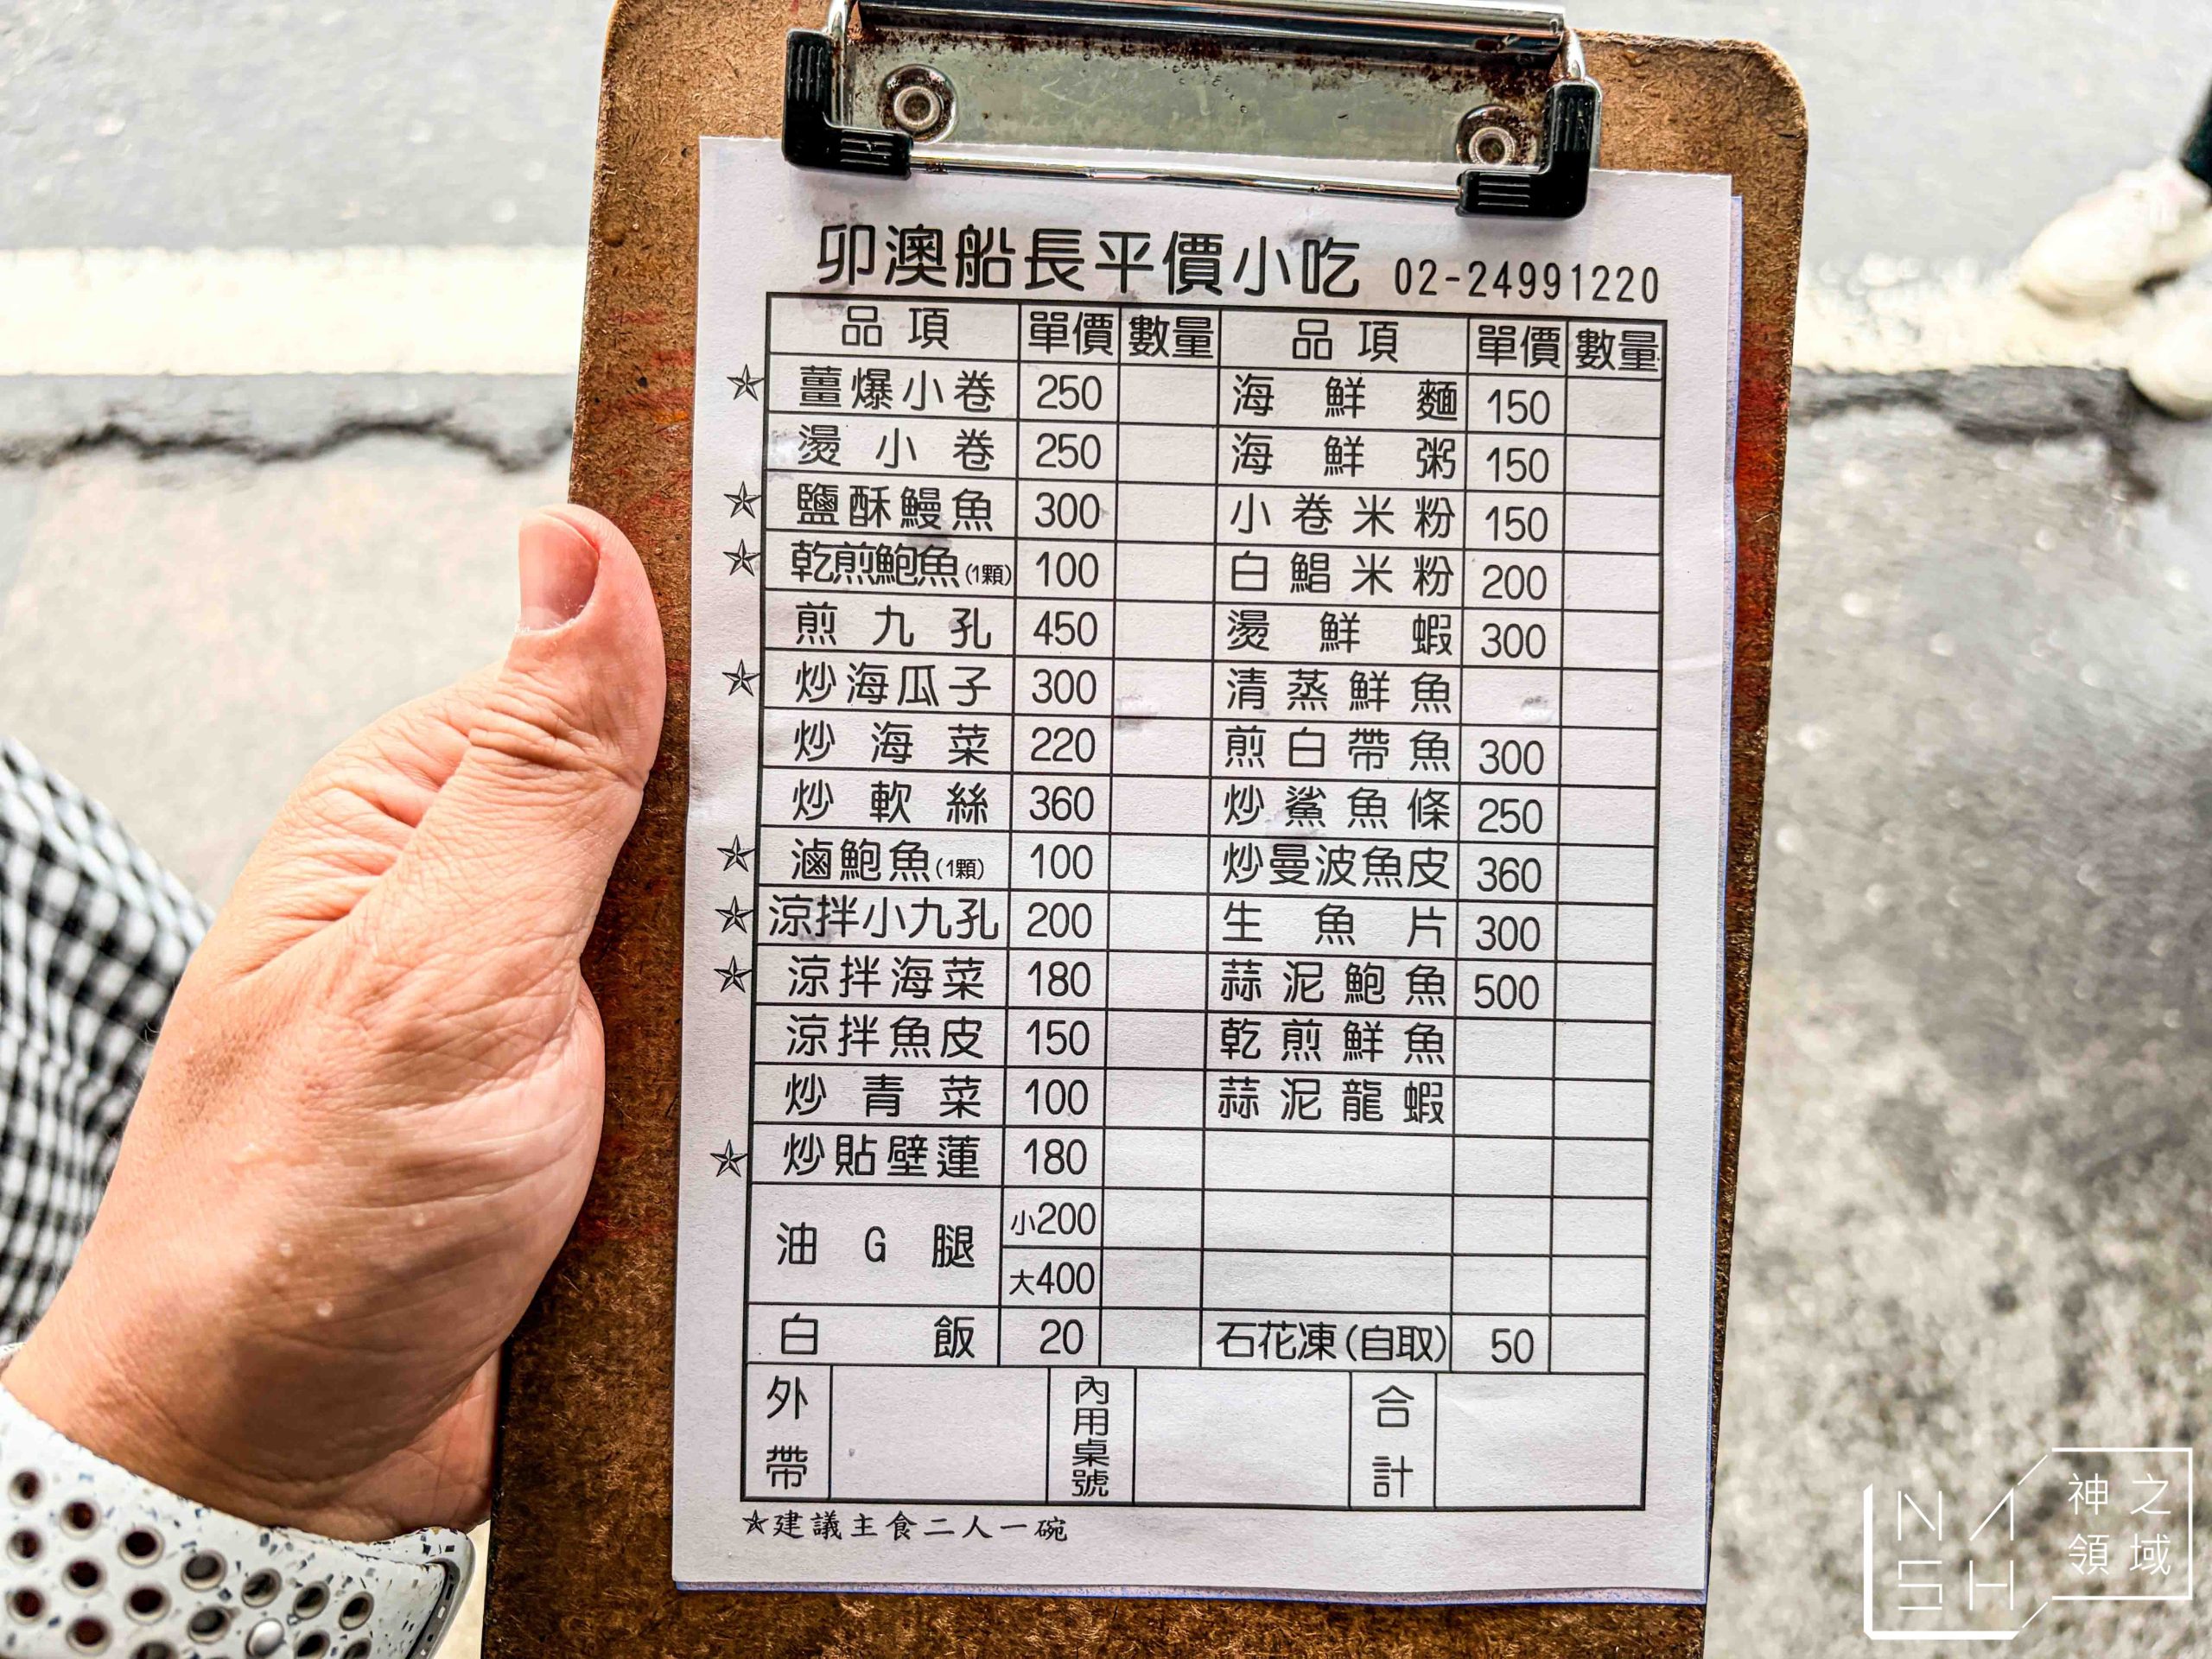 卯澳船長平價小吃 02-24991220
品項 單價 數量 品項 單價 數量
☆ 薑爆小卷 250 海鮮麵 150
燙小卷 250 海鮮粥 150
☆ 鹽酥鰻魚 300 小卷米粉 150
☆ 乾煎鮑魚(1顆) 100 白鯧米粉 200
煎九孔 450 燙鮮蝦 300
☆ 炒海瓜子 300 清蒸鮮魚
炒海菜 220 煎白帶魚 300
炒軟絲 360 炒鯊魚條 250
☆ 滷鮑魚(1顆) 100 炒曼波魚皮 360
☆ 涼拌小九孔 200 生魚片 300
☆ 涼拌海菜 180 蒜泥鮑魚 500
涼拌魚皮 150 乾煎鮮魚
炒青菜 100 蒜泥龍蝦
☆ 炒貼壁蓮 180
油G腿 小200
大400
白飯 20 石花凍(自取) 50
外帶 內用桌號 合計
☆建議主食二人一碗
NASH 神之領域